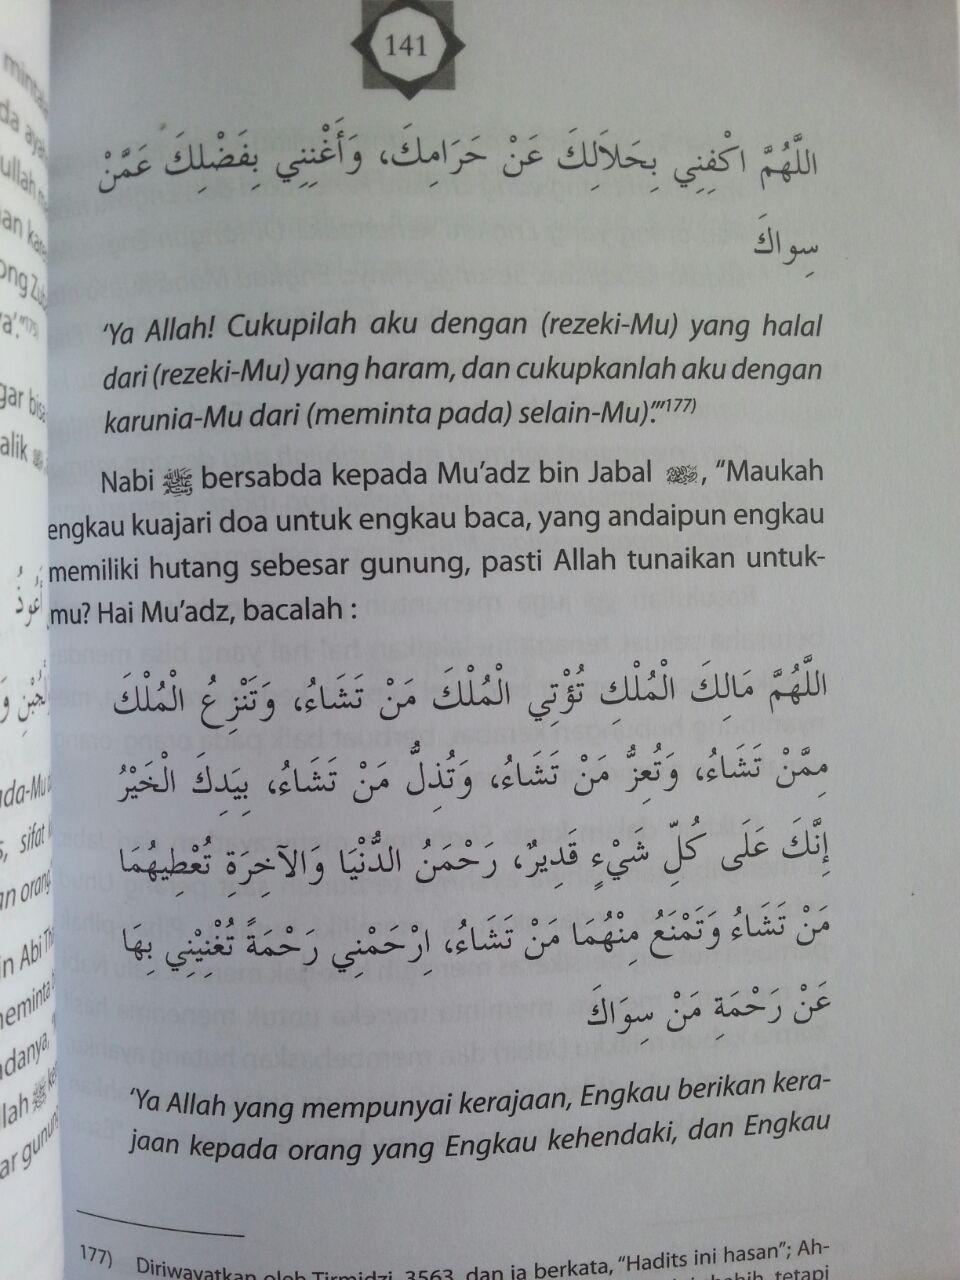 141
اللَّهُمَّ اكْفِنِي بِحَلَالِكَ عَنْ حَرَامِكَ، وَأَغْنِنِي بِفَضْلِكَ عَمَّنْ
سِواكَ
'Ya Allah! Cukupilah aku dengan (rezeki-Mu) yang halal
dari (rezeki-Mu) yang haram, dan cukupkanlah aku dengan
karunia-Mu dari (meminta pada) selain-Mu).'"177)
Nabi ﷺ bersabda kepada Mu'adz bin Jabal , "Maukah
engkau kuajari doa untuk engkau baca, yang andaipun engkau
memiliki hutang sebesar gunung, pasti Allah tunaikan untuk-
mu? Hai Mu'adz, bacalah :
اللَّهُمَّ مَالِكَ الْمُلْكِ تُؤْتِي الْمُلْكَ مَنْ تَشَاءُ، وَتَنْزِعُ الْمُلْكَ
مِمَّنْ تَشَاءُ، وَتُعِزُّ مَنْ تَشَاءُ، وَتُذِلُّ مَنْ تَشَاءُ، بِيَدِكَ الْخَيْرُ
إِنَّكَ عَلَى كُلِّ شَيْءٍ قَدِيرٌ، رَحْمَنُ الدُّنْيَا وَالآخِرَةِ تُعْطِيهُمَا
مَنْ تَشَاءُ وَتَمْنَعُ مِنْهُمَا مَنْ تَشَاءُ، اِرْحَمْنِي رَحْمَةً تُغْنِيْنِي بِهَا
عَنْ رَحْمَةِ مَنْ سِوَاكَ
'Ya Allah yang mempunyai kerajaan, Engkau berikan kera-
jaan kepada orang yang Engkau kehendaki, dan Engkau
177) Diriwayatkan oleh Tirmidzi, 3563, dan ia berkata, "Hadits ini hasan"; Ah-
tetapi